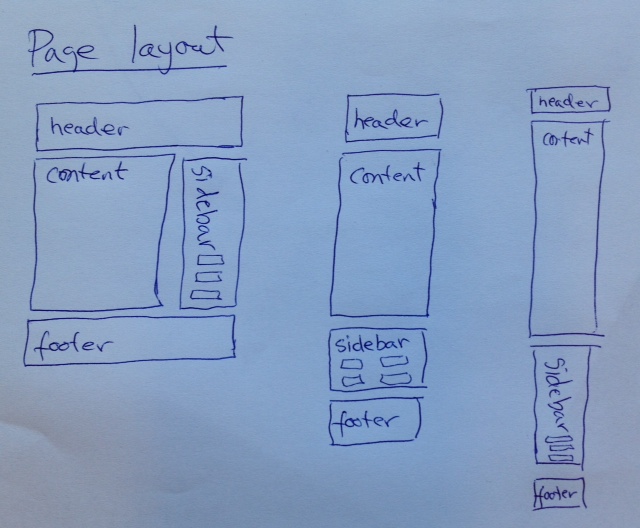 Page layout
header
content
sidebar
footer
header
content
sidebar
footer
header
content
sidebar
footer